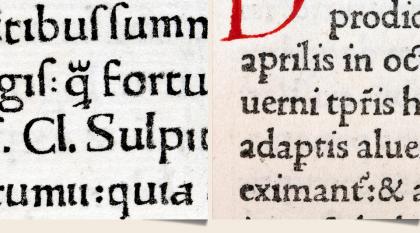 ıcıbuſſumn
gıſ: q̃ fortu
. Cl. Sulpıı
tumıı:quıa
D prodic
aprilis in oct
uerni tpr̃is h
adaptis alue
eximant̃:& a